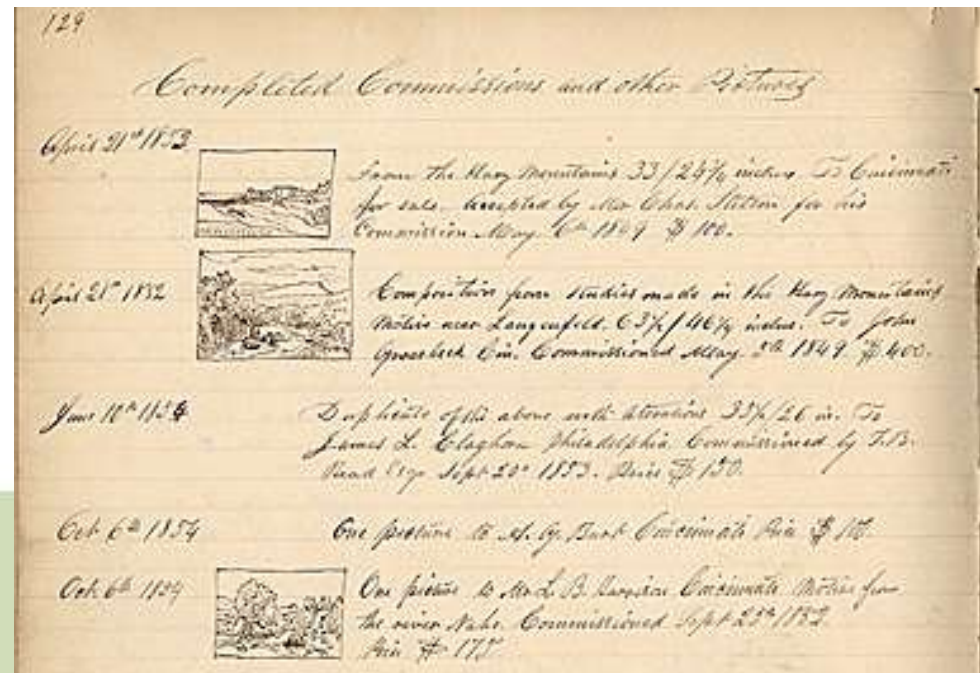 129
Completed Commissions and other Pictures
April 21st 1852
From the Harz Mountains 33/24½ inches To Cincinnati
for sale. Accepted by Mr Chas. Stetson for his
Commission May 6th 1849 $ 100.
April 21st 1852
Composition from studies made in the Harz Mountains
Motive near Langenfeld. 63½/46½ inches. To John
Groesbeck Cin. Commissioned May 1849 $ 400.
June 10th 1854
Duplicate of the above with alterations 35½/26 in. To
James L. Claghorn Philadelphia Commissioned by T.B.
Read Esqr Sept 20th 1853. Price $ 150.
Oct 6th 1854
One picture to Burt Cincinnati Price $
Oct 6th 1854
One picture to Mr L. B. Harrison Cincinnati Motive from
the river Nahe. Commissioned Sept 25th 1852
Price $ 175